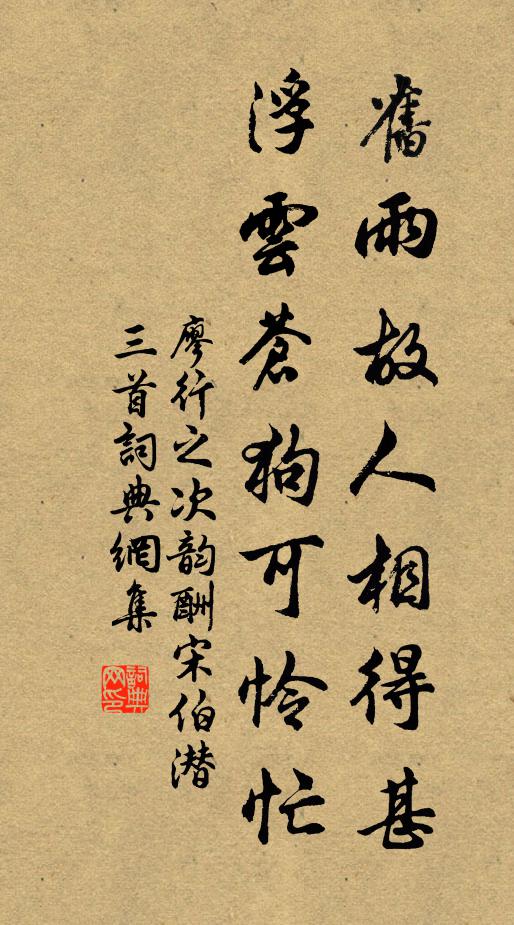 舊雨故人相得甚
浮雲蒼狗可憐忙
廖行之次韵酬宋伯潜
三首詞典網集
詞典
网印